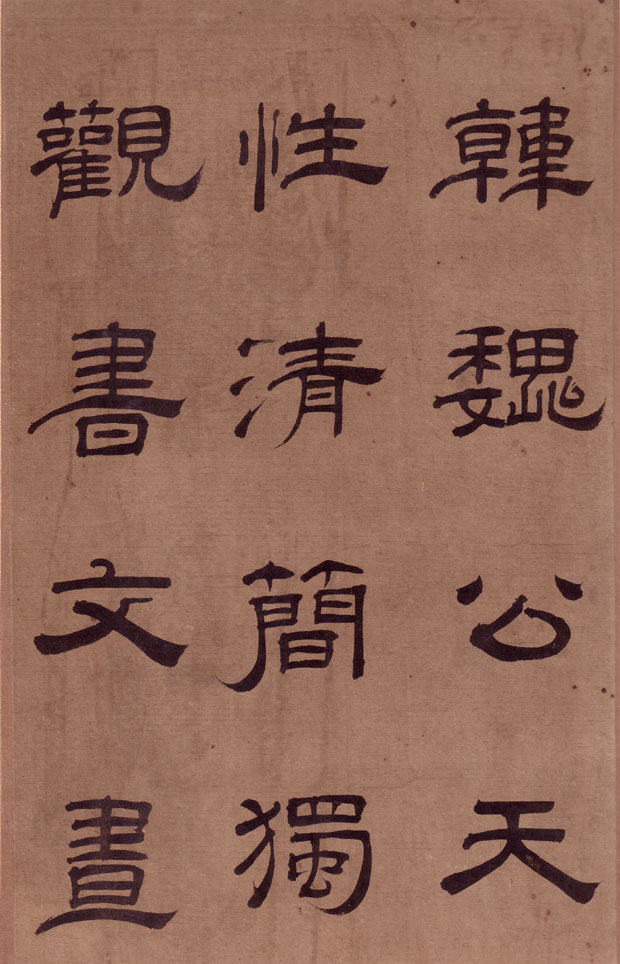 韓魏公天
性清簡獨
觀書文晝